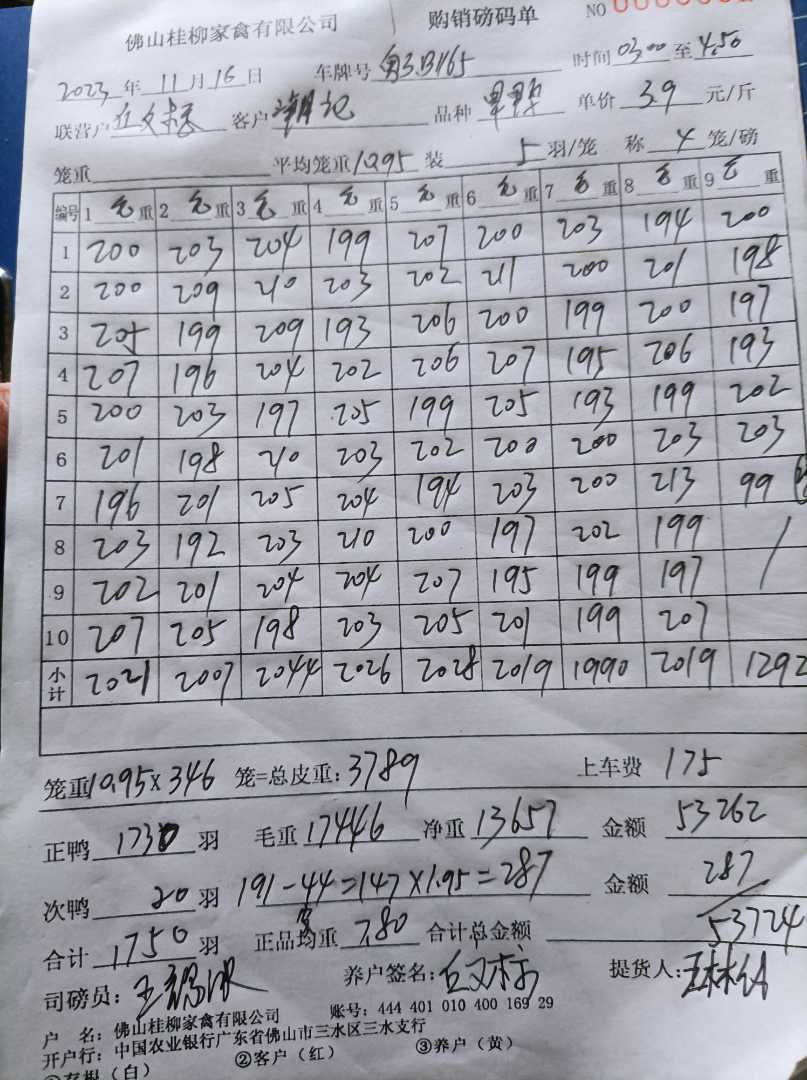 佛山桂柳家禽有限公司 购销磅码单 NO
2023 年 11 月 16 日 车牌号 粤3.B465 时间 03:00 至 4:50
联营户 丘文标 客户 记 品种 单价 3.9 元/斤
笼重 平均笼重 10.95 装 5 羽/笼 称 4 笼/磅
编号 1 毛重 2 毛重 3 毛重 4 毛重 5 毛重 6 毛重 7 毛重 8 毛重 9 毛重
1 200 203 204 199 207 200 203 194 200
2 200 209 210 203 202 211 200 201 198
3 205 199 209 193 206 200 199 200 197
4 207 196 204 202 206 207 195 206 193
5 200 203 197 205 199 205 193 199 202
6 201 198 210 203 202 200 200 203 203
7 196 201 205 204 194 203 200 213 99
8 203 192 203 210 200 197 202 199 /
9 202 201 204 204 207 195 199 197
10 207 205 198 203 205 201 199 207
小计 2021 2007 2044 2026 2028 2019 1990 2019 1292
笼重 10.95 x 346 笼=总皮重: 3789 上车费 175
正鸭 1730 羽 毛重 17446 净重 13657 金额 53262
次鸭 20 羽 191-44=147×1.95=287 金额 287
合计 1750 羽 正品均重 7.80 合计总金额 53724
司磅员: 王 养户签名: 丘文标 提货人:
户 名: 佛山桂柳家禽有限公司 账号: 444 401 010 400 169 29
开户行: 中国农业银行广东省佛山市三水区三水支行
①存根(白) ②客户(红) ③养户(黄)